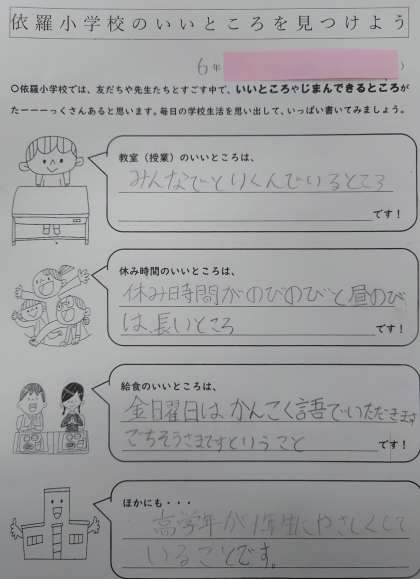 依羅小学校のいいところを見つけよう
6年
)
○依羅小学校では、友だちや先生たちとすごす中で、いいところやじまんできるところが
たーーーっくさんあると思います。毎日の学校生活を思い出して、いっぱい書いてみましょう。
教室（授業）のいいところは、
みんなでとりくんでいるところ
です！
休み時間のいいところは、
休み時間がのびのびと昼のび
は、長いところ
です！
給食のいいところは、
金曜日はかんこく語でいただきます
ごちそうさまですということ
です！
ほかにも・・・
高学年が1年生にやさしくして
いることです。